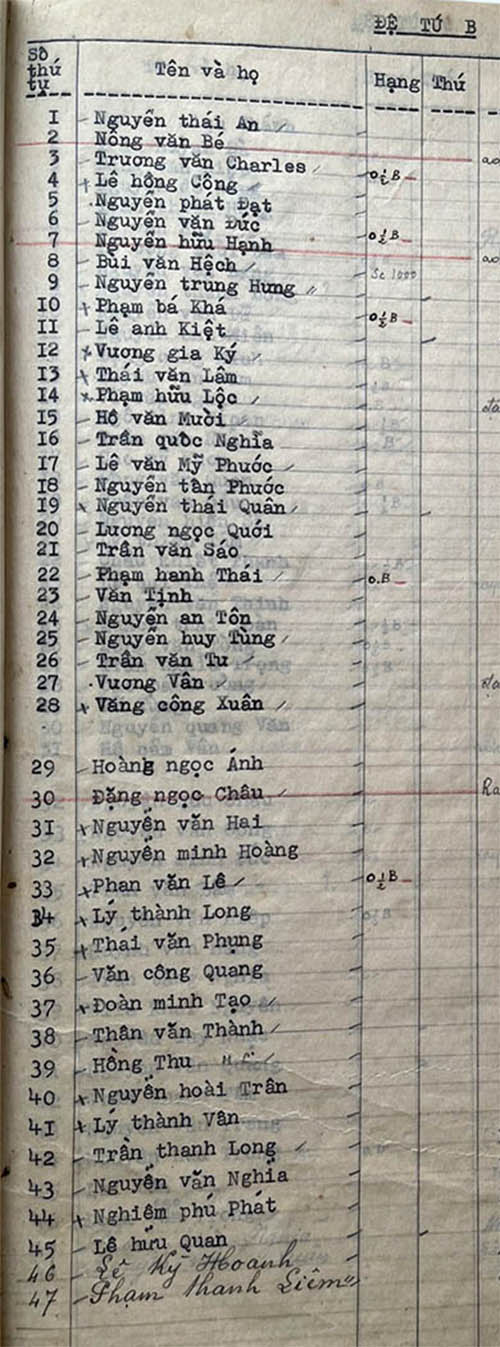 ĐỆ TỨ B
Số thứ tự Tên và họ Hạng Thứ
1 Nguyễn thái An
2 Nông văn Bé
3 Trương văn Charles
4 Lê hồng Cộng 0 ½ B
5 Nguyễn phát Đạt
6 Nguyễn văn Đức
7 Nguyễn hữu Hạnh 0 ½ B
8 Bùi văn Hệch
9 Nguyễn trung Hưng Sc 1000
10 Phạm bá Khá
11 Lê anh Kiệt 0 ½ B
12 Vương gia Ký
13 Thái văn Lâm
14 Phạm hữu Lộc
15 Hồ văn Mười
16 Trần quốc Nghĩa
17 Lê văn Mỹ Phước
18 Nguyễn tân Phước
19 Nguyễn thái Quân
20 Lương ngọc Quới
21 Trần văn Sáo
22 Phạm hanh Thái 0.B
23 Văn Tịnh
24 Nguyễn an Tôn
25 Nguyễn huy Tùng
26 Trần văn Tư
27 Vương Vân
28 Văng công Xuân
29 Hoàng ngọc Ánh
30 Đặng ngọc Châu Ra
31 Nguyễn văn Hai
32 Nguyễn minh Hoàng
33 Phan văn Lê 0 ½ B
34 Lý thành Long
35 Thái văn Phụng
36 Văn công Quang
37 Đoàn minh Tạo
38 Thân văn Thành
39 Hồng Thu
40 Nguyễn hoài Trân
41 Lý thành Vân
42 Trần thanh Long
43 Nguyễn văn Nghĩa
44 Nghiêm phú Phát
45 Lê hữu Quan
46 Lê Ký Hoanh
47 Phạm Thanh Liêm